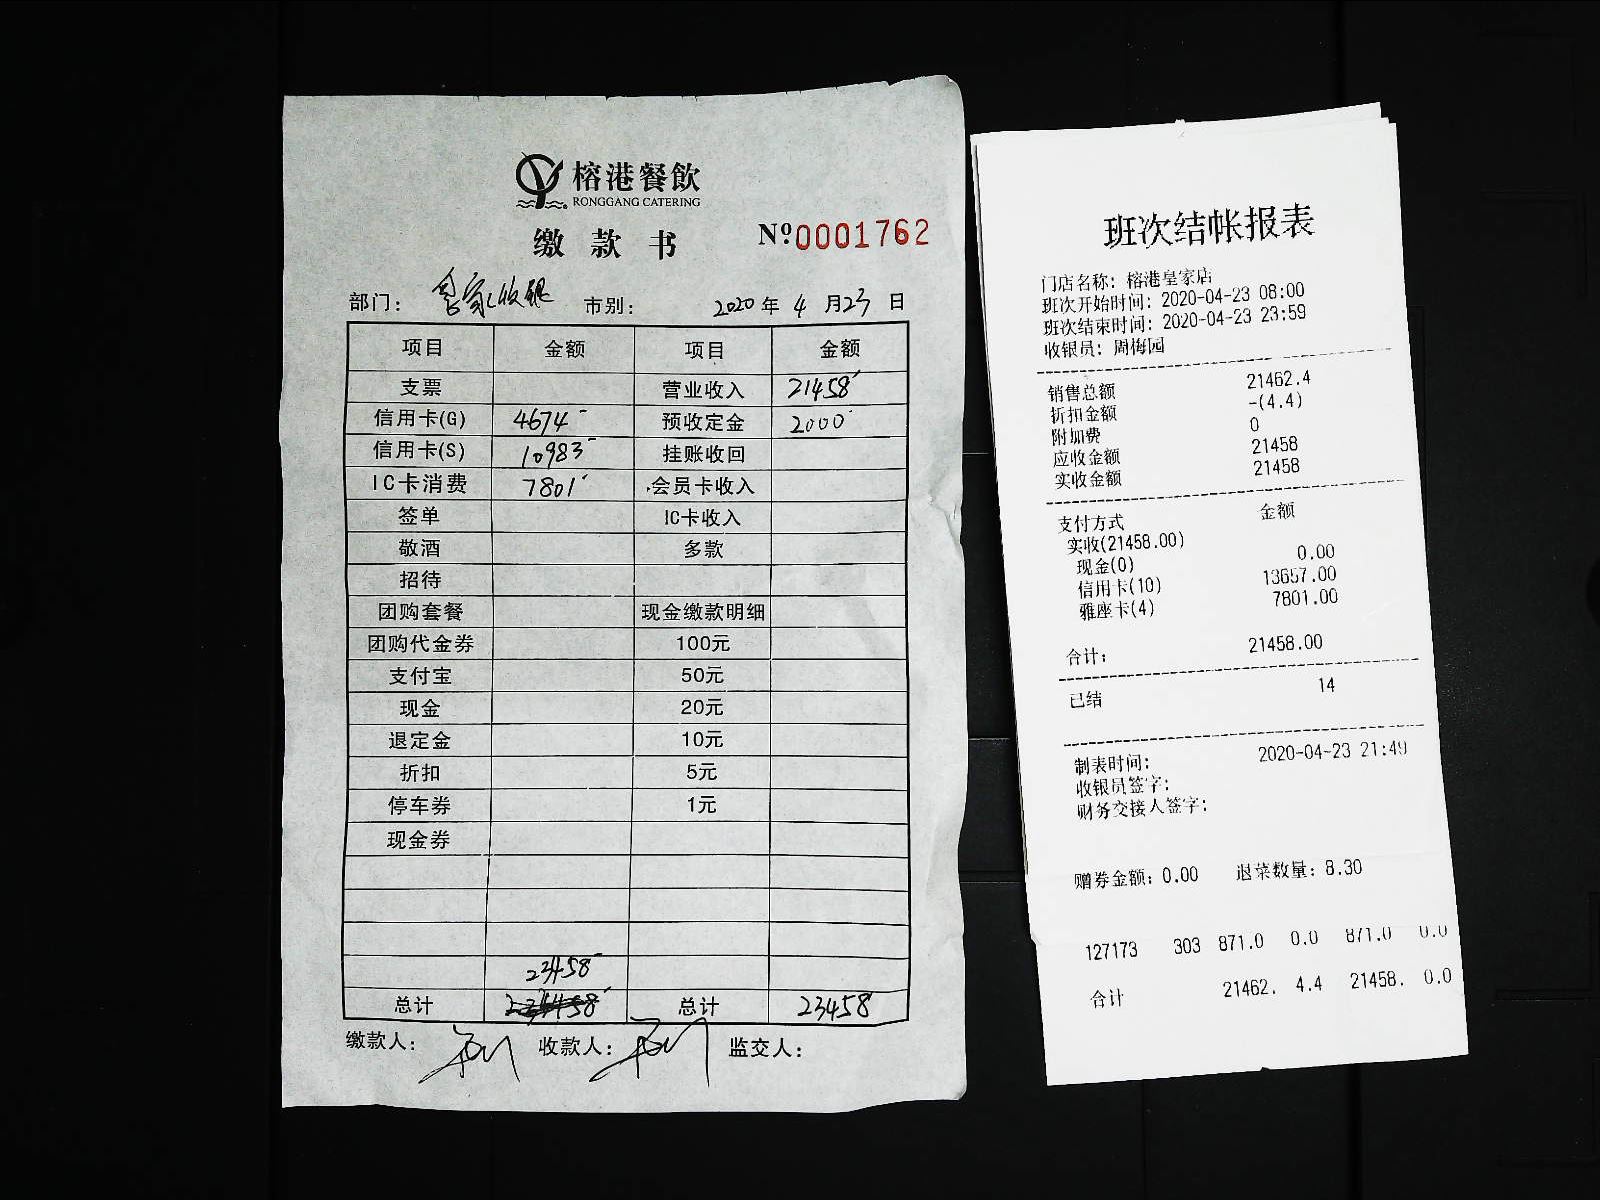 榕港餐飲
RONGGANG CATERING
缴款书
Nº0001762
部门： 皇家收银 市别： 2020年4月23日
项目 金额 项目 金额
支票 营业收入 21458
信用卡(G) 4674 预收定金 2000
信用卡(S) 10983 挂账收回
IC卡消费 7801 会员卡收入
签单 IC卡收入
敬酒 多款
招待
团购套餐 现金缴款明细
团购代金券 100元
支付宝 50元
现金 20元
退定金 10元
折扣 5元
停车券 1元
现金券
23458
总计 总计 23458
缴款人： 收款人： 监交人：
班次结帐报表
门店名称：榕港皇家店
班次开始时间：2020-04-23 08:00
班次结束时间：2020-04-23 23:59
收银员：周梅园
销售总额 21462.4
折扣金额 -(4.4)
附加费 0
应收金额 21458
实收金额 21458
支付方式 金额
实收(21458.00)
现金(0) 0.00
信用卡(10) 13657.00
雅座卡(4) 7801.00
合计： 21458.00
已结 14
制表时间： 2020-04-23 21:49
收银员签字：
财务交接人签字：
赠券金额：0.00 退菜数量：8.30
127173 303 871.0 0.0 871.0 0.0
合计 21462. 4.4 21458. 0.0